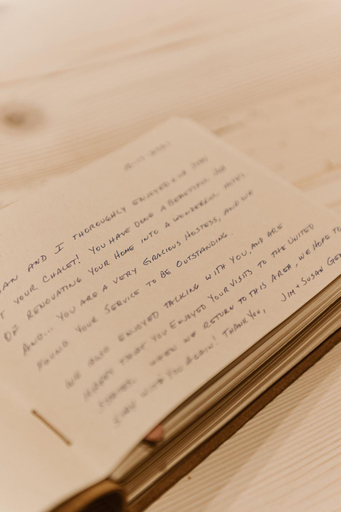 AN AND I THOROUGHLY ENJOYED OUR STAY
AT YOUR CHALET! YOU HAVE DONE A BEAUTIFUL JOB
OF RENOVATING YOUR HOME INTO A WONDERFUL
AND... YOU ARE A VERY GRACIOUS HOSTESS, AND WE
FOUND YOUR SERVICE TO BE OUTSTANDING.
WE ALSO ENJOYED TALKING WITH YOU, AND ARE
HAPPY THAT YOU ENJOYED YOUR VISITS TO THE UNITED
STATES. WHEN WE RETURN TO THIS AREA, WE HOPE TO
STAY WITH YOU AGAIN! THANK YOU,
JIM & SUSAN